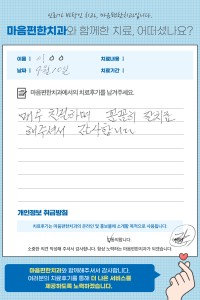 신뢰가 바탕인 치과, 마음편한치과입니다.
마음편한치과와 함께한 치료, 어떠셨나요?
이름 | 이 O O
치료내용 |
날짜 |
치료기간 |
마음편한치과에서의 치료후기를 남겨주세요.
매우 친절하며 꼼꼼히 잘치료
해주셔서 감사합니다
개인정보 취급방침
치료후기는 마음편한치과의 온라인 및 홍보물에 소개할 목적으로 사용됩니다.
동의합니다
소중한 의견 작성해 주셔서 감사합니다. 항상 노력하는 마음편한치과가 되겠습니다.
마음편한치과와 함께해주셔서 감사합니다.
여러분의 치료후기를 통해 더 나은 서비스를
제공하도록 노력하겠습니다.